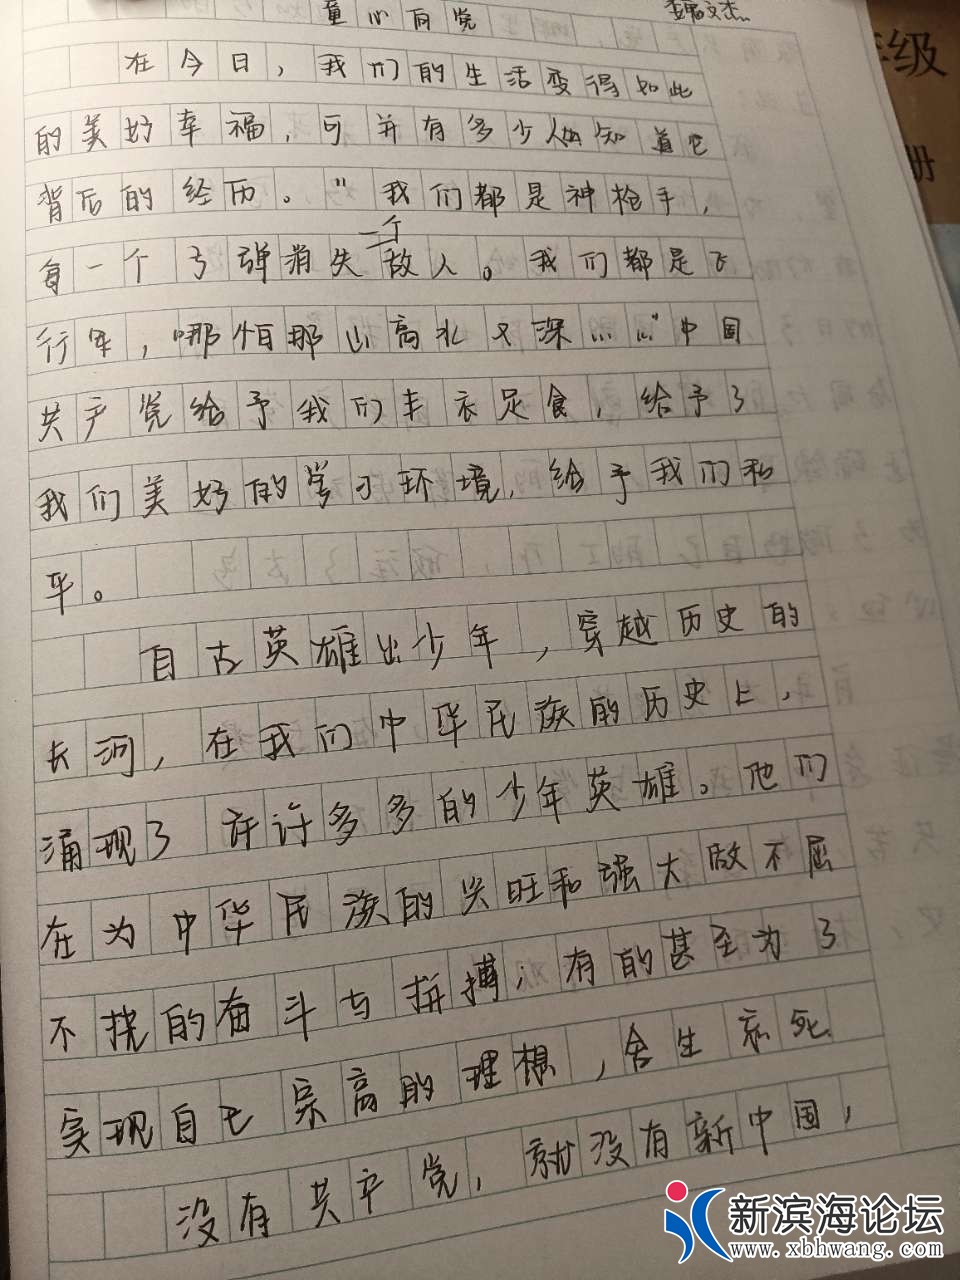 童心向党
在今日，我们的生活变得如此
的美好幸福，可并有多少人知道它
背后的经历。“我们都是神枪手，
一个
每一个子弹消失敌人。我们都是飞
行军，哪怕那山高水又深……”中国
共产党给予我们丰衣足食，给予了
我们美好的学习环境，给予我们和
平。
自古英雄出少年，穿越历史的
长河，在我们中华民族的历史上，
涌现了许许多多的少年英雄。他们
在为中华民族的兴旺和强大做不屈
不挠的奋斗与拼搏；有的甚至为了
实现自已崇高的理想，舍生忘死
没有共产党，就没有新中国，
级
册
新滨海论坛
www.xbhwang.com